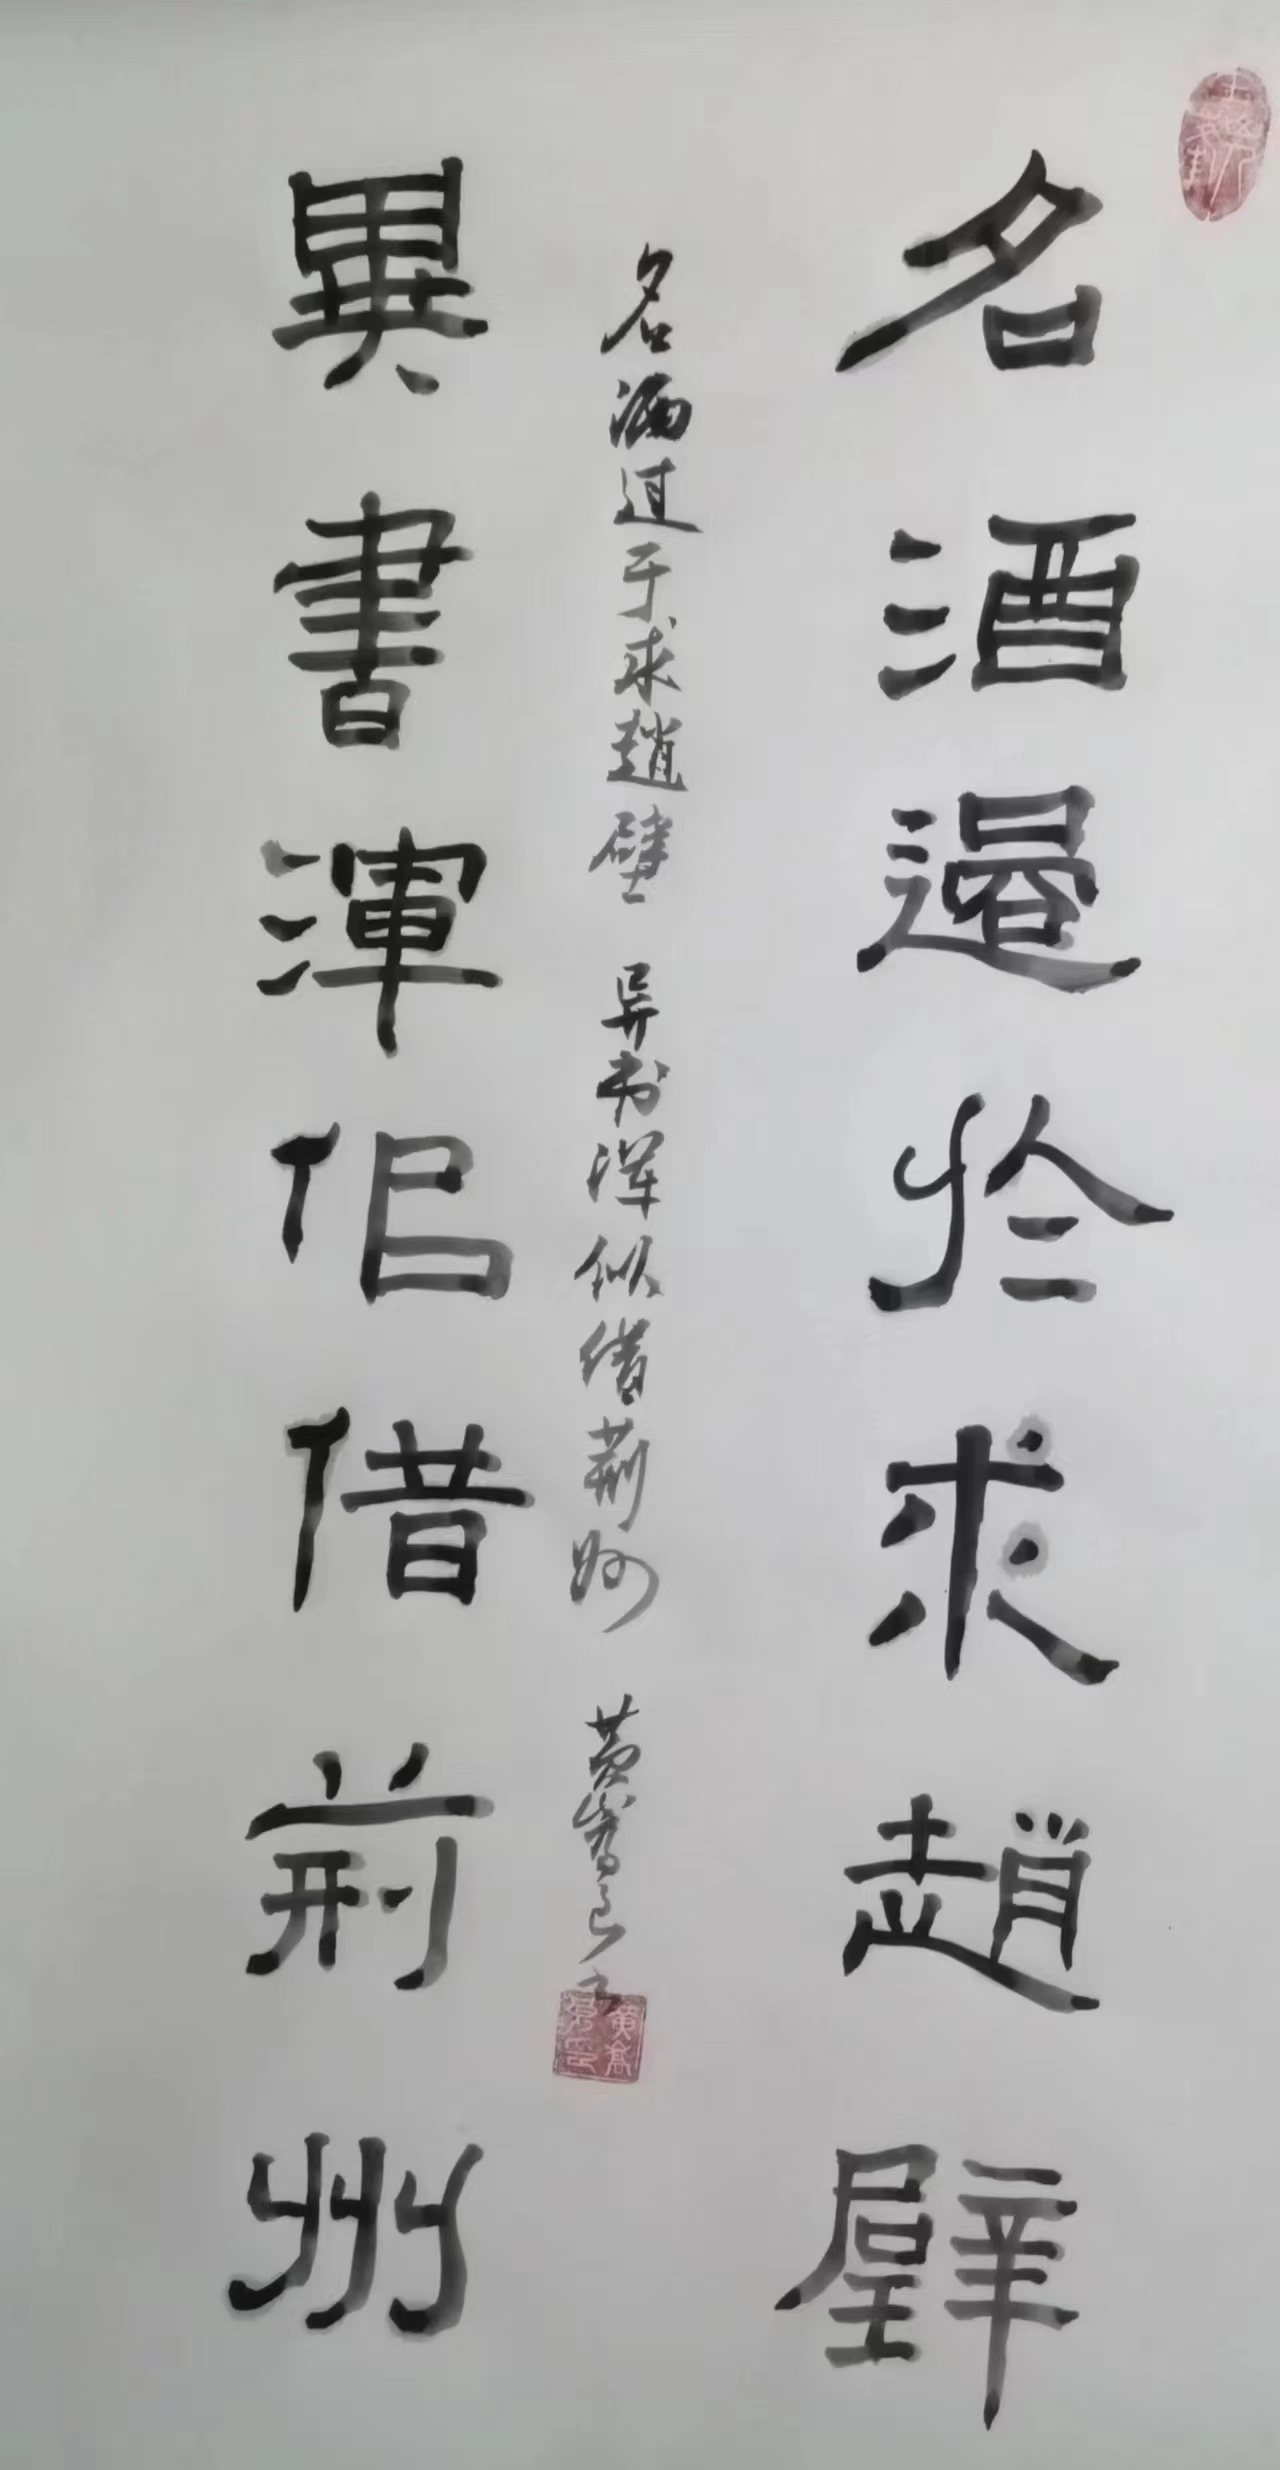 名酒過於求趙璧
名酒过于求趙璧 异书浑似借荆州 黄嵩良书
異書渾侣借荊州